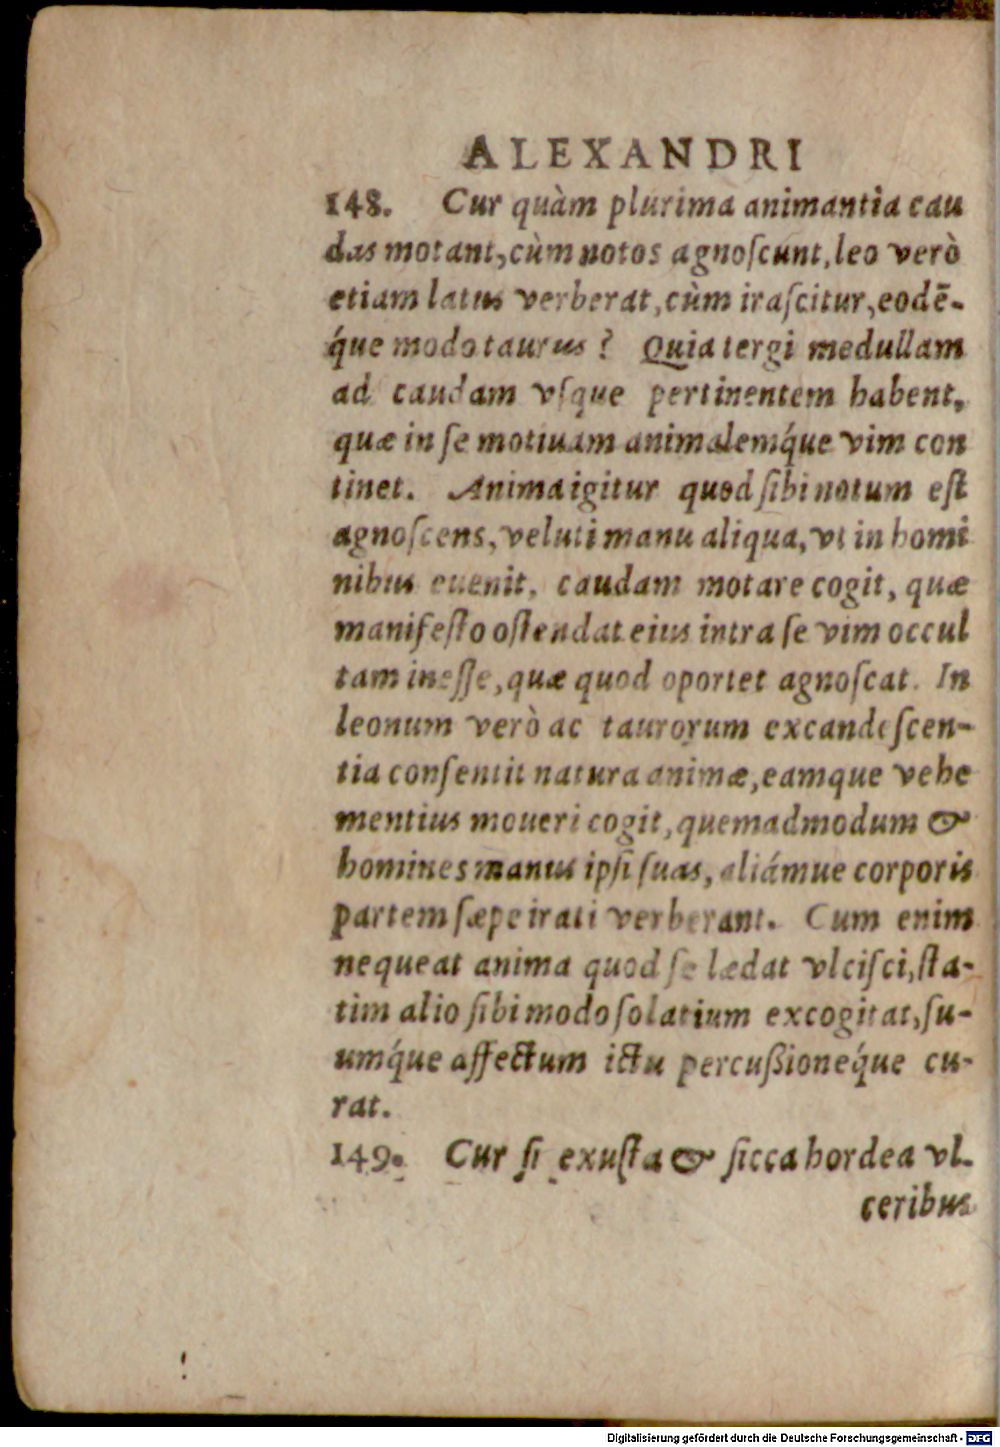 ALEXANDRI
148. Cur quàm plurima animantia cau
das motant, cùm notos agnoſcunt, leo verò
etiam latus verberat, cùm iraſcitur, eodē-
q́ue modo taurus? Quia tergi medullam
ad caudam vſque pertinentem habent,
quæ in ſe motiuam animalemq́ue vim con
tinet. Anima igitur quod ſibi notum eſt
agnoſcens, veluti manu aliqua, vt in homi
nibus euenit, caudam motare cogit, quæ
manifeſto oſtendat eius intra ſe vim occul
tam ineſſe, quæ quod oportet agnoſcat. In
leonum verò ac taurorum excandeſcen-
tia conſentit natura animæ, eamque vehe
mentius moueri cogit, quemadmodum &
homines manus ipſi ſuas, aliámue corporis
partem ſæpe irati verberant. Cum enim
nequeat anima quod ſe lædat vlciſci, ſta-
tim alio ſibi modo ſolatium excogitat, ſu-
umq́ue affectum ictu percußioneq́ue cu-
rat.
149. Cur ſi exuſta & ſicca hordea vl-
ceribus
Digitalisierung gefördert durch die Deutsche Forschungsgemeinschaft - DFG